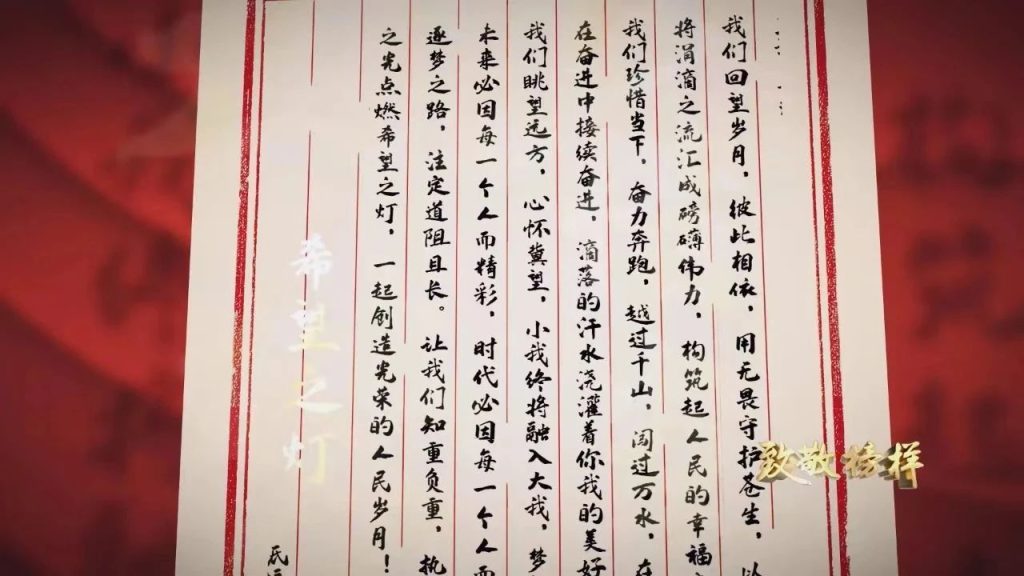 我们回望岁月，彼此相依，用无畏守护苍生，以
将涓滴之流汇成磅礴伟力，构筑起人民的幸福
我们珍惜当下，奋力奔跑，越过千山，闯过万水，在
在奋进中接续奋进，滴落的汗水浇灌着你我的美好
我们眺望远方，心怀冀望，小我终将融入大我，梦
未来必因每一个人而精彩，时代必因每一个人而
逐梦之路，注定道阻且长。让我们知重负重，执
之光点燃希望之灯，一起创造光荣的人民岁月！
希望之灯
致敬榜样